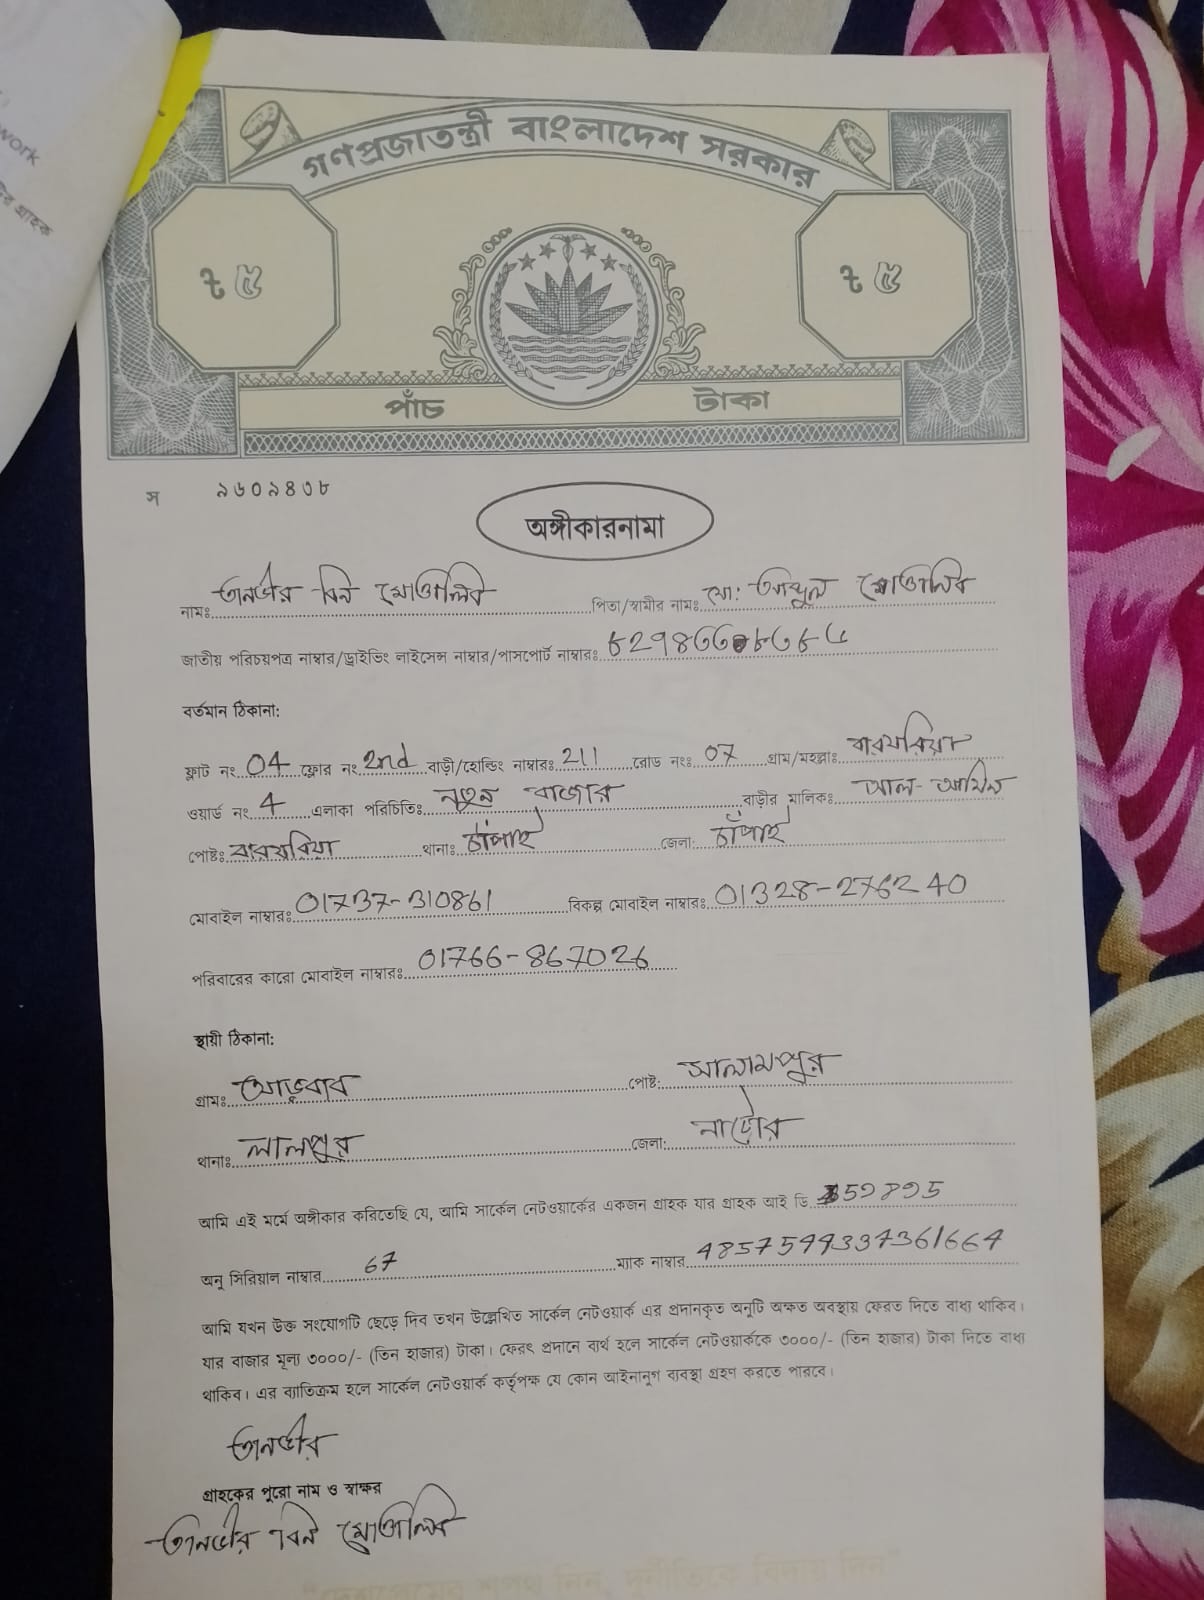 work
গ্রাহক
গণপ্রজাতন্ত্রী বাংলাদেশ সরকার
৳ ৫ ৳ ৫
পাঁচ টাকা
স ৯৬০৯৪৩৮
অঙ্গীকারনামা
নামঃ তানভীর বিন মোত্তালিব পিতা/স্বামীর নামঃ মো: আব্দুল মোত্তালিব
জাতীয় পরিচয়পত্র নাম্বার/ড্রাইভিং লাইসেন্স নাম্বার/পাসপোর্ট নাম্বারঃ
বর্তমান ঠিকানা:
ফ্লাট নং 04 ফ্লোর নং 2nd বাড়ী/হোল্ডিং নাম্বারঃ 211 রোড নংঃ 07 গ্রাম/মহল্লাঃ বারঘরিয়া
ওয়ার্ড নং 4 এলাকা পরিচিতিঃ নতুন বাজার বাড়ীর মালিকঃ আল-আমিন
পোষ্টঃ বারঘরিয়া থানাঃ চাঁপাই জেলা: চাঁপাই
মোবাইল নাম্বারঃ 01737-310861 বিকল্প মোবাইল নাম্বারঃ 01328-276240
পরিবারের কারো মোবাইল নাম্বারঃ 01766-867026
স্থায়ী ঠিকানা:
গ্রামঃ পোষ্ট: সালামপুর
থানাঃ লালপুর জেলা: নাটোর
আমি এই মর্মে অঙ্গীকার করিতেছি যে, আমি সার্কেল নেটওয়ার্কের একজন গ্রাহক যার গ্রাহক আই ডি
অনু সিরিয়াল নাম্বার 67 ম্যাক নাম্বার 4857544337361664
আমি যখন উক্ত সংযোগটি ছেড়ে দিব তখন উল্লেখিত সার্কেল নেটওয়ার্ক এর প্রদানকৃত অনুটি অক্ষত অবস্থায় ফেরত দিতে বাধ্য থাকিব।
যার বাজার মূল্য ৩০০০/- (তিন হাজার) টাকা। ফেরৎ প্রদানে ব্যর্থ হলে সার্কেল নেটওয়ার্ককে ৩০০০/- (তিন হাজার) টাকা দিতে বাধ্য
থাকিব। এর ব্যাতিক্রম হলে সার্কেল নেটওয়ার্ক কর্তৃপক্ষ যে কোন আইনানুগ ব্যবস্থা গ্রহণ করতে পারবে।
তানভীর
গ্রাহকের পুরো নাম ও স্বাক্ষর
তানভীর বিন মোত্তালিব
"দেশপ্রেমের শপথ নিন, দুর্নীতিকে বিদায় দিন"